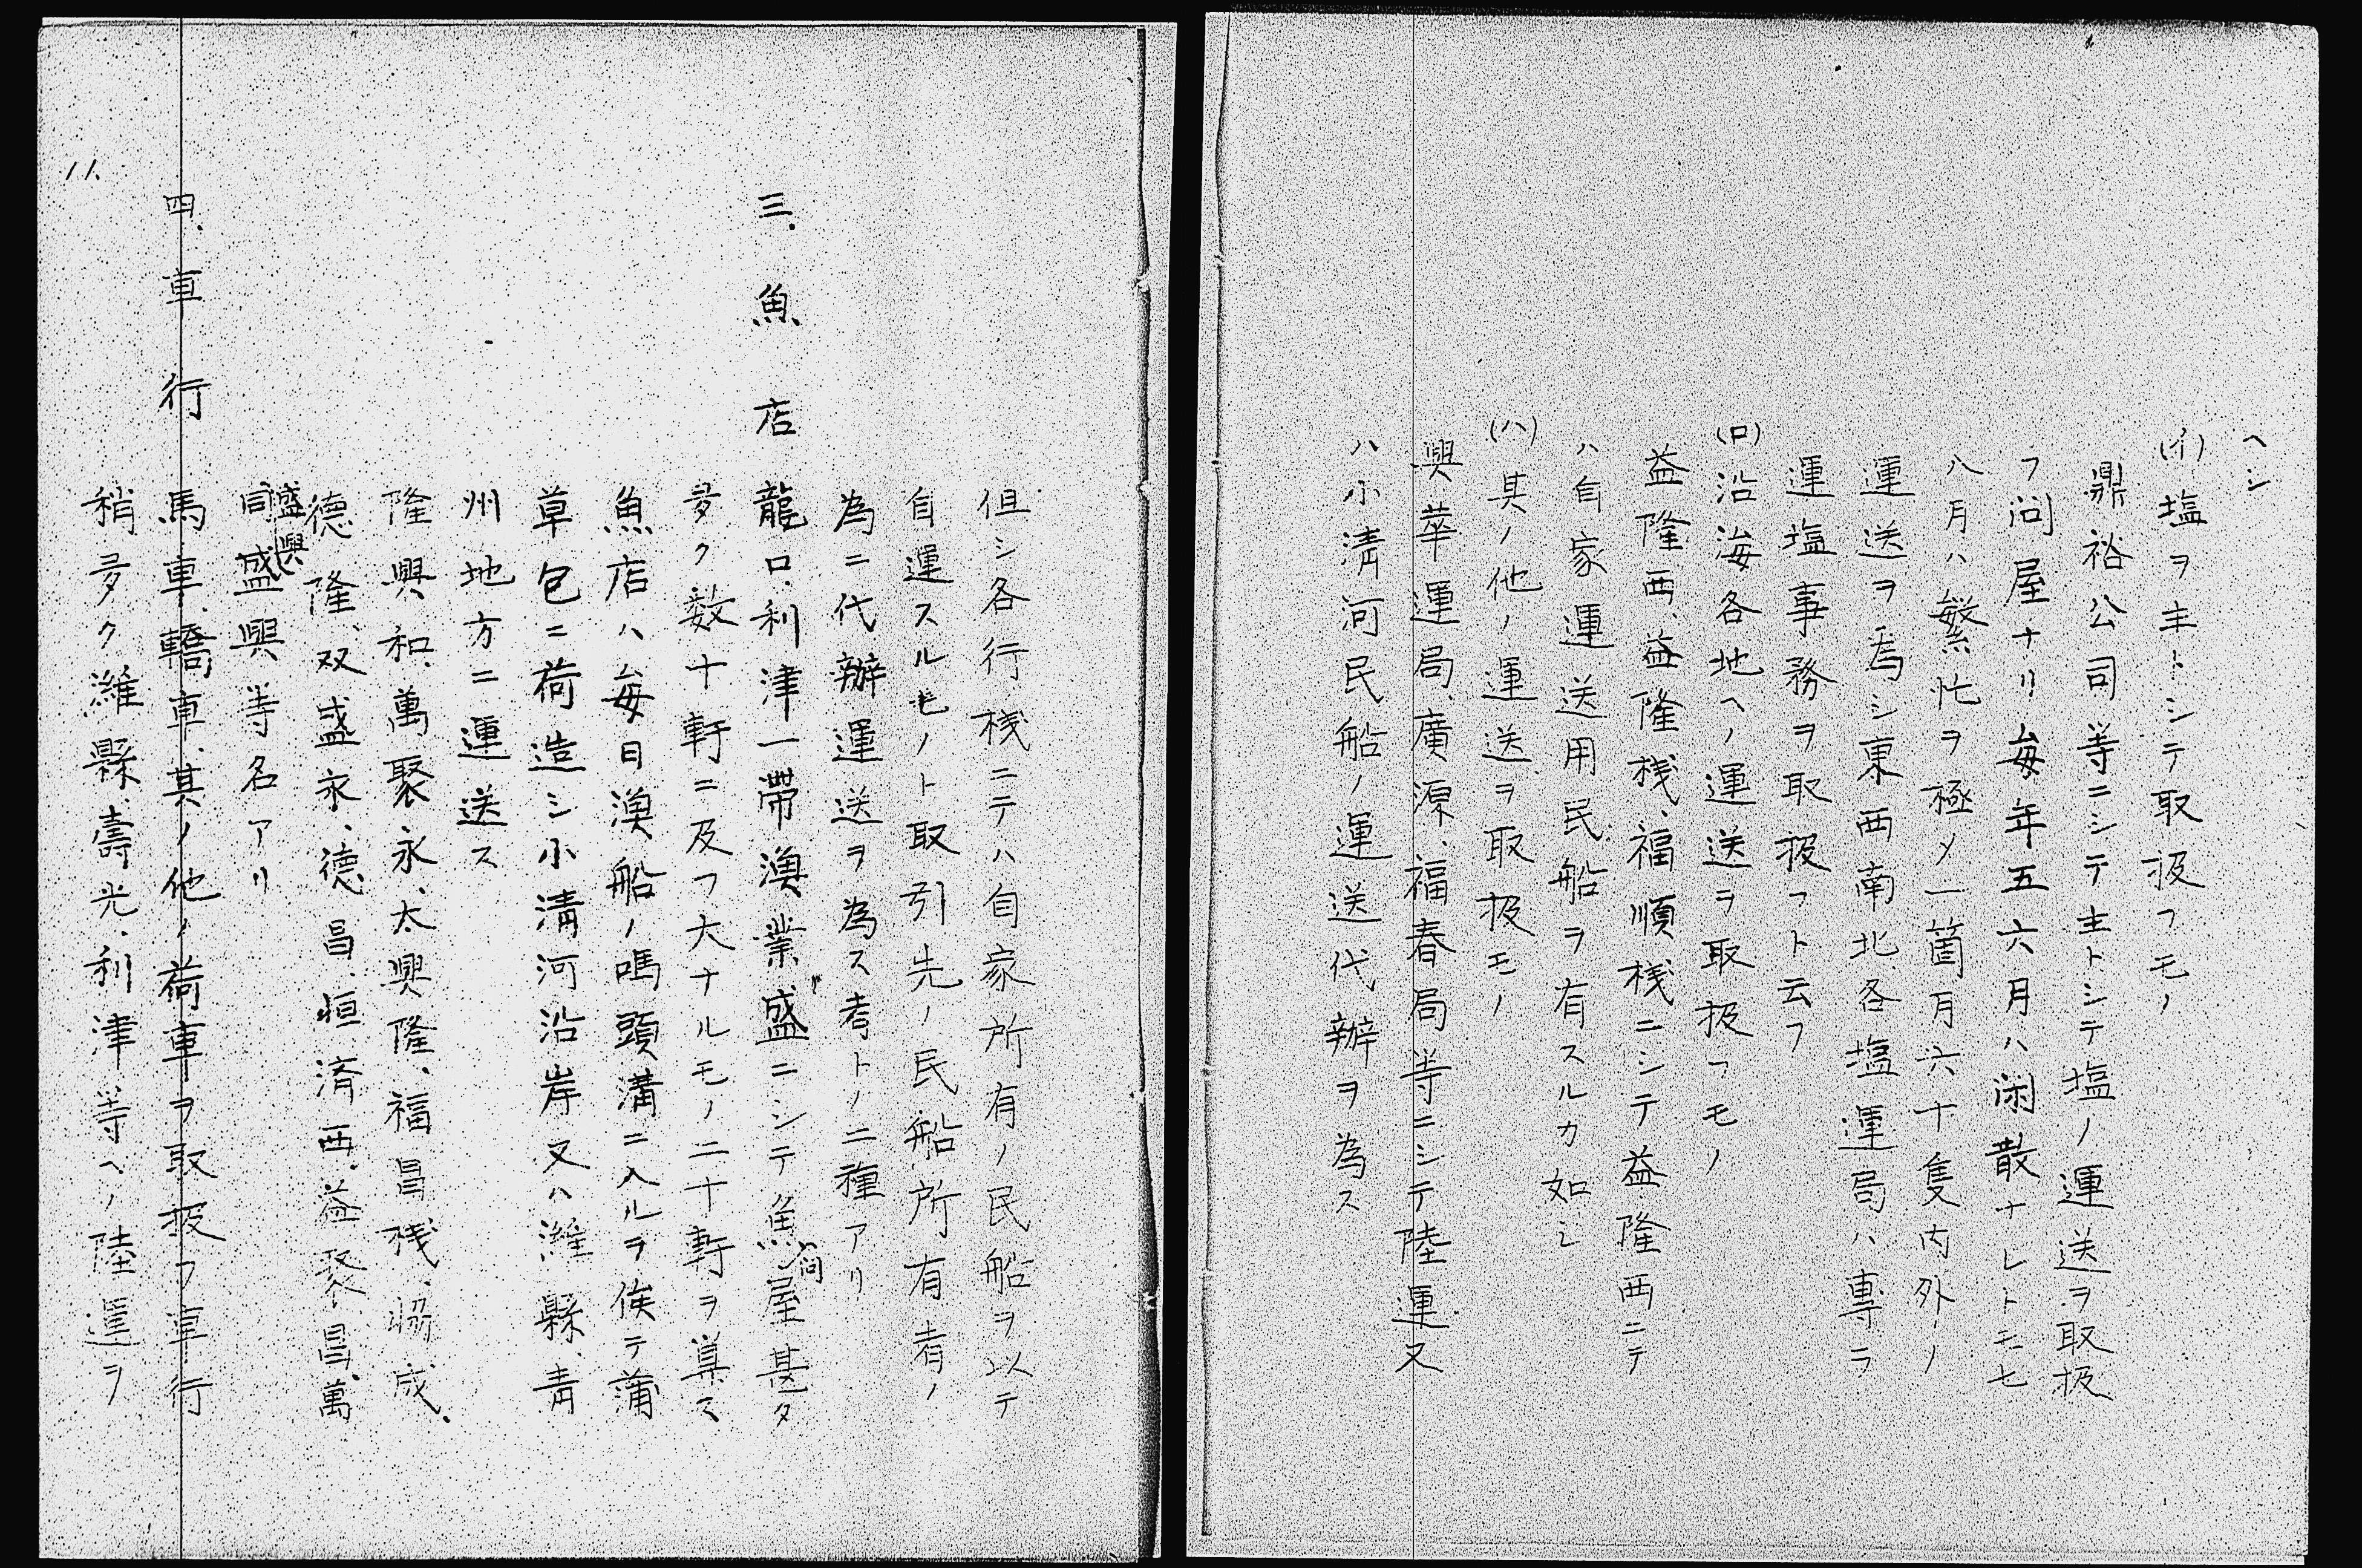 ヘシ
(イ)塩ヲ主トシテ取扱フモノ
鼎裕公司等ニシテ主トシテ塩ノ運送ヲ取扱
フ问屋ナリ毎年五六月ハ闲散ナレトモ七
八月ハ繁忙ヲ極メ一箇月六十隻内外ノ
運送ヲ為シ東西南北各塩運局ハ專ラ
運塩事務ヲ取扱フト云フ
(ロ)沿海各地ヘノ運送ヲ取扱フモノ
益隆西、益隆桟、福順桟ニシテ益隆西ニテ
ハ自家運送用民船ヲ有スルカ如シ
(ハ)其ノ他ノ運送ヲ取扱モノ
興華運局、廣源、福春局等ニシテ陸運又
ハ小淸河民船ノ運送代辦ヲ為ス
但シ各行桟ニテハ自家所有ノ民船ヲ以テ
自運スルモノト取引先ノ民船所有者ノ
為ニ代辦運送ヲ為ス者トノ二種アリ
三、魚店 龍口、利津一帶漁業盛ニシテ魚问屋甚タ
多ク数十軒ニ及フ大ナルモノ二十軒ヲ算ス
魚店ハ毎日漁船ノ嗎頭溝ニ入ルヲ俟テ蒲
草包ニ荷造シ小淸河沿岸又ハ濰縣、靑
州地方ニ運送ス
隆興和、萬聚永、太興隆、福昌桟、協成、
德隆、双盛永、德昌、恒済西、益聚昌、萬
盛興
同盛興等名アリ
四、車行 馬車、轎車、其ノ他ノ荷車ヲ取扱フ車行
稍多ク濰縣、壽光、利津等ヘノ陸運ヲ
11.